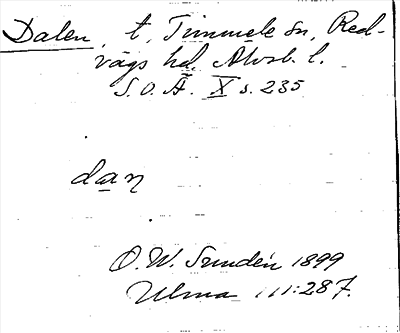 Dalen, t, Timmele sn, Red-
vägs hd Älvsb. l.
S.O.Ä. X s. 235
dan
O.W. Sundén 1899
Ulma 111:287.